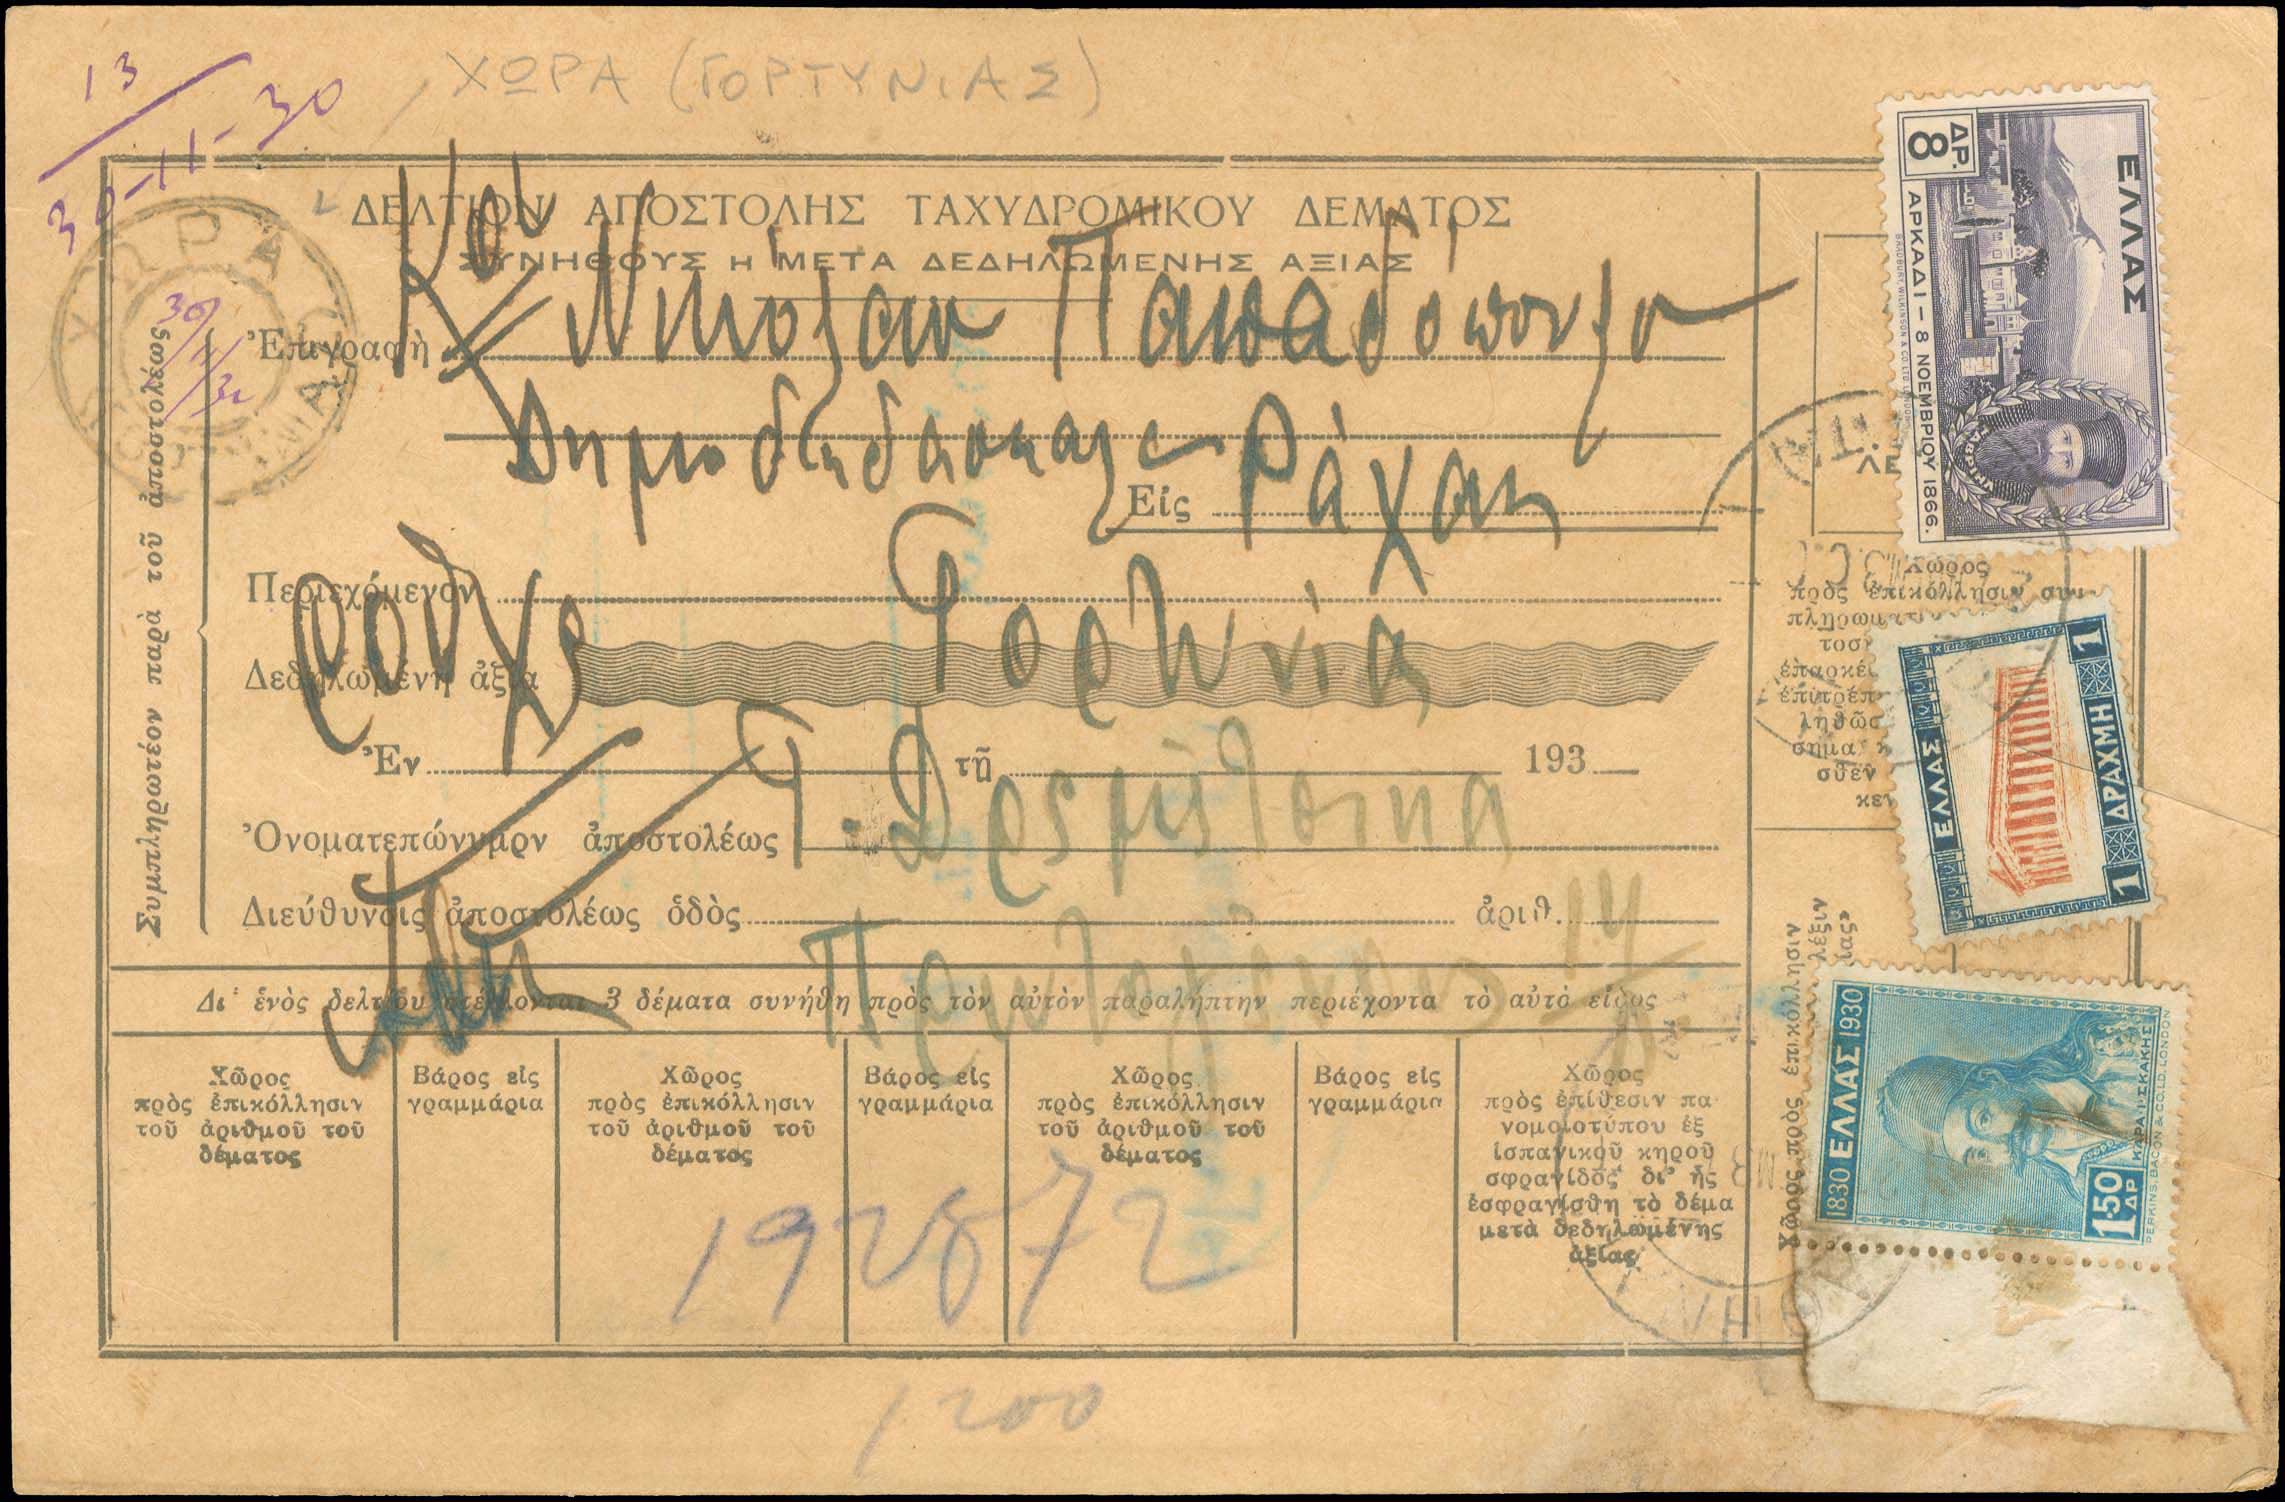 ΧΩΡΑ (ΓΟΡΤΥΝΙΑΣ)
13
30-11-30
ΧΩΡΑ
30/11/30
ΔΕΛΤΙΟΝ ΑΠΟΣΤΟΛΗΣ ΤΑΧΥΔΡΟΜΙΚΟΥ ΔΕΜΑΤΟΣ
ΣΥΝΗΘΟΥΣ Η ΜΕΤΑ ΔΕΔΗΛΩΜΕΝΗΣ ΑΞΙΑΣ
Συμπληρωτέον παρὰ τοῦ ἀποστολέως
Κον
Ἐπιγραφὴ Νικόλαον Παπαδόπουλο
Δημοδιδάσκαλον
Εἰς Ράχαις
Περιεχόμενον
ρουχα Γορτυνίας
Δεδηλωμένη ἀξία
Ἐν τῇ 193
Ὀνοματεπώνυμον ἀποστολέως
Διεύθυνσις ἀποστολέως ὁδὸς Πρωτογένους ἀριθ. 14
Δι' ἑνὸς δελτίου στέλλονται 3 δέματα συνήθη πρὸς τὸν αὐτὸν παραλήπτην περιέχοντα τὸ αὐτὸ εἶδος
Χῶρος πρὸς ἐπικόλλησιν τοῦ ἀριθμοῦ τοῦ δέματος
Βάρος εἰς γραμμάρια
Χῶρος πρὸς ἐπικόλλησιν τοῦ ἀριθμοῦ τοῦ δέματος
Βάρος εἰς γραμμάρια
Χῶρος πρὸς ἐπικόλλησιν τοῦ ἀριθμοῦ τοῦ δέματος
Βάρος εἰς γραμμάρια
Χῶρος
πρὸς ἐπίθεσιν πα-
νομοιοτύπου ἐξ
ἱσπανικοῦ κηροῦ
σφραγίδος δι' ἧς
ἐσφραγίσθη τὸ δέμα
μετὰ δεδηλωμένης
ἀξίας
192872
1200
Χῶρος
πρὸς ἐπικόλλησιν συμ-
πληρωμ
Χῶρος πρὸς ἐπικόλλησιν
λέξιν
ίας»
ΕΛΛΑΣ
ΔΡ. 8
ΑΡΚΑΔΙ – 8 ΝΟΕΜΒΡΙΟΥ 1866.
BRADBURY, WILKINSON & CO. LTD. LONDON
ΓΑΒΡΙΗΛ
ΕΛΛΑΣ
1 ΔΡΑΧΜΗ 1
1830 ΕΛΛΑΣ 1930
1·50 ΔΡ
ΚΑΡΑΪΣΚΑΚΗΣ
PERKINS, BACON & CO. LD. LONDON